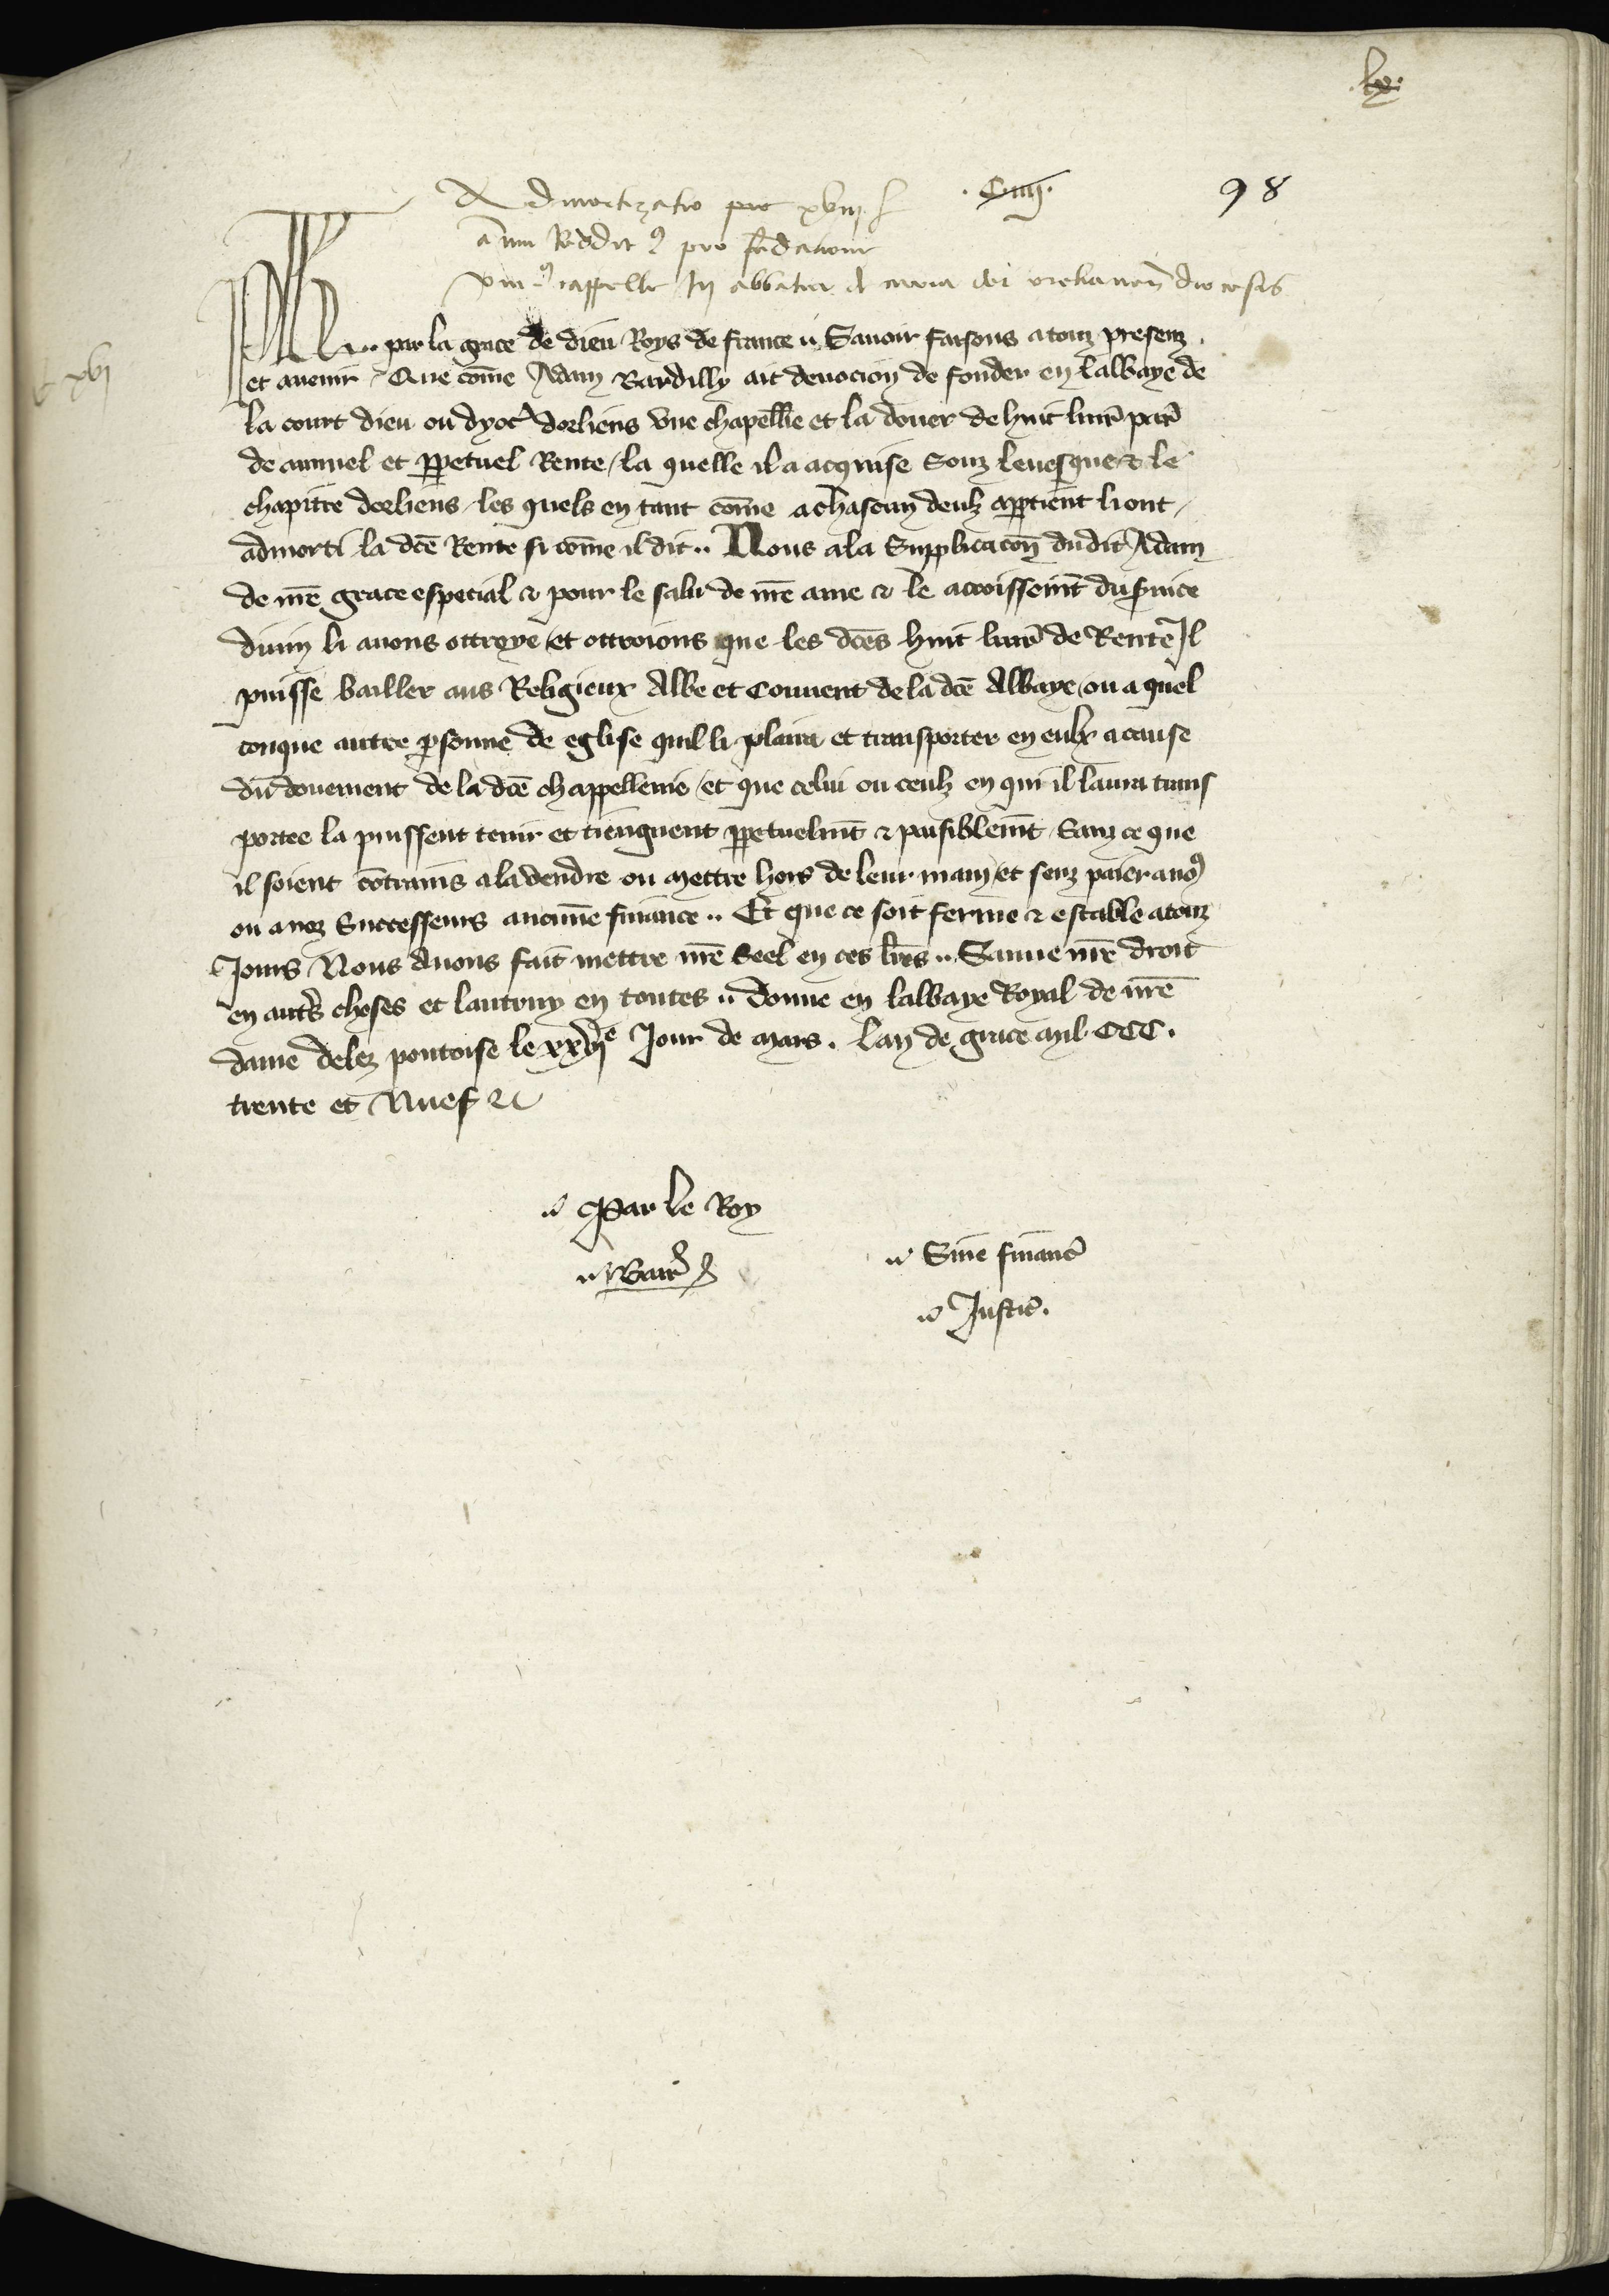 .lx.
.Ciiij.
98
Admortizatio pro xviij l
annui Redditus pro fundacione
unius cappelle In abbatia de curia dei aurelianen diocesis
xvj
Ph.. par la grace de dieu Roys de france .. Sauoir faisons a touz presenz
et auenir / Que cõme Adam Bardilly ait deuocion de fonder en labbaye de
la court dieu ou dyoc dorliens vne chapellie et la douer de huit liur par
de annuel et ppetuel Rente / la quelle il a acquise Souz leuesque & le
chapitre dorliens / les quels en tant cõme a chascun deulz apptient li ont /
admorti la dcẽ Rente si cõme il dit .. Nous a la Supplicacoñ dudit Adam
de nrẽ grace especial & pour le salu de nrẽ ame & le accroissemt du suice
diuin li auons ottroye / et ottroions que les dcẽs huit liur de Rente Il
puisse bailler aus Religieux Abbe et Conuent de la dcẽ Abbaye / ou a quel
conque autre psonne de eglise quil li plaira et transporter en eulx a cause
du douement de la dcẽ chappellenie / et que celui ou ceulz en qui il laura trans
portee la puissent tenir et tienguent ppetuelmt & paisiblemt Sanz ce que
il soient cõtrains a la vendre ou mettre hors de leur main / et senz paier a nos
ou a noz Successeurs aucune finance .. Et que ce soit ferme & estable a touz
Jours Nous Auons fait mettre nrẽ Seel en ces lrẽs .. Sauue nrẽ droit
en autrs choses et lautruy en toutes .. Donne en labbaye Royal de nrẽ
dame delez pontoise le xxvje Jour de mars . Lan de grace mil CCC .
trente et Nuef &c
.. Par le Roy
.. Barr
.. Sine financ
.. Justic .